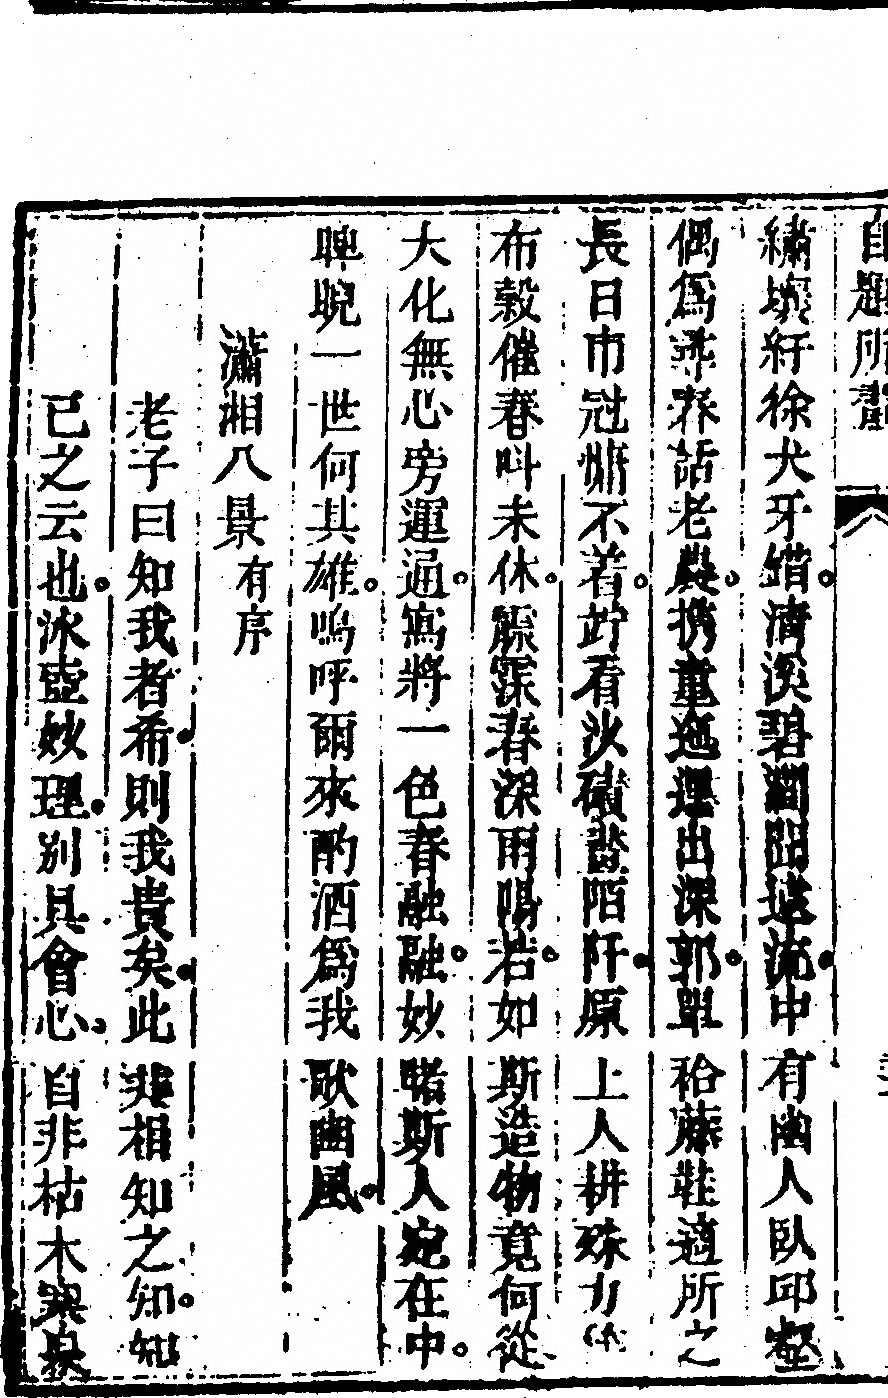 自題所畫
繡壤紆徐犬牙錯清溪碧澗闘遠流中有幽人臥邱壑
偶爲尋春話老農携童迤邐出深郭單袷藤鞋適所之
長日巾冠慵不着竚看沙磧暨陌阡原上人耕殊力作
布穀催春呌未休霢霂春深雨暘若如斯造物竟何從
大化無心旁運通寫將一色春融融妙睹斯人宛在中
睥睨一世何其雄嗚呼爾來酌酒爲我歌豳風
瀟湘八景有序
老子曰知我者希則我貴矣此非相知之知知
已之云也氷壺妙理別具會心自非枯木寒泉